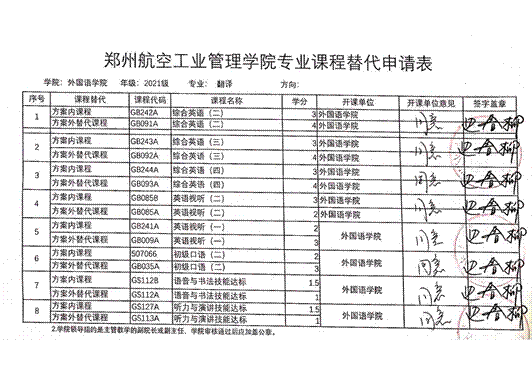 郑州航空工业管理学院专业课程替代申请表
学院：外国语学院 年级：2021级 专业： 翻译 方向：
序号 课程替代 课程代码 课程名称 学分 开课单位 开课单位意见 签字盖章
1 方案内课程 GB242A 综合英语（二） 3 外国语学院 同意
方案外替代课程 GB091A 综合英语（二） 4 外国语学院
2 方案内课程 GB243A 综合英语（三） 3 外国语学院 同意
方案外替代课程 GB092A 综合英语（三） 4 外国语学院
3 方案内课程 GB244A 综合英语（四） 3 外国语学院 同意
方案外替代课程 GB093A 综合英语（四） 4 外国语学院
4 方案内课程 GB085B 英语视听（二） 3 外国语学院 同意
方案外替代课程 GB085A 英语视听（二） 2 外国语学院
5 方案内课程 GB241A 英语视听（一） 2 外国语学院 同意
方案外替代课程 GB009A 英语视听（一） 3
6 方案内课程 507066 初级口语（二） 2 外国语学院 同意
方案外替代课程 GB035A 初级口语（二） 3
7 方案内课程 GS112B 语音与书法技能达标 1.5 外国语学院 同意
方案外替代课程 GS112A 语音与书法技能达标 1
8 方案内课程 GS127A 听力与演讲技能达标 1.5 外国语学院 同意
方案外替代课程 GS113A 听力与演讲技能达标 1
2.学院领导指的是主管教学的副院长或副主任、学院审核通过后应加盖公章。